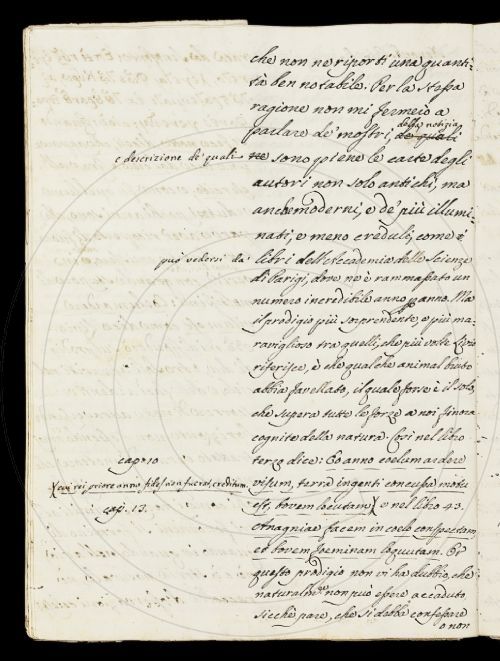 che non ne riporti una quanti-
tà ben notabile. Per la stessa
ragione non mi fermerò a
della notizia
parlare de' mostri, de quali
e descrizione de' quali
ne sono piene le carte degli
autori non solo antichi, ma
anche moderni, e de' più illumi-
nati, e meno creduli, come è
può vedersi da'
libri dell'Accademia delle Scienze
di Parigi, dove ne è rammassato un
numero incredibile anno p anno. Ma
il prodigio più sorprendente, e più ma-
raviglioso tra quelli, che più volte Livio
riferisce, è che qualche animal bruto
abbia favellato, il quale forse è il solo,
che supera tutte le forze a noi finora
cognite della natura. Così nel libro
cap. 10
terzo dice: Eo anno coelum ardere
cui rei priore anno fides non fuerat, creditum.
visum, terra ingenti concussa motu
est, bovem locutam, e nel libro 43.
cap. 13.
Anagniae facem in coelo conspectam
et bovem foeminam loquutam. Or
questo prodigio non vi ha dubbio, che
naturalmte non può essere accaduto
sicchè pare, che si debba confessare
o non